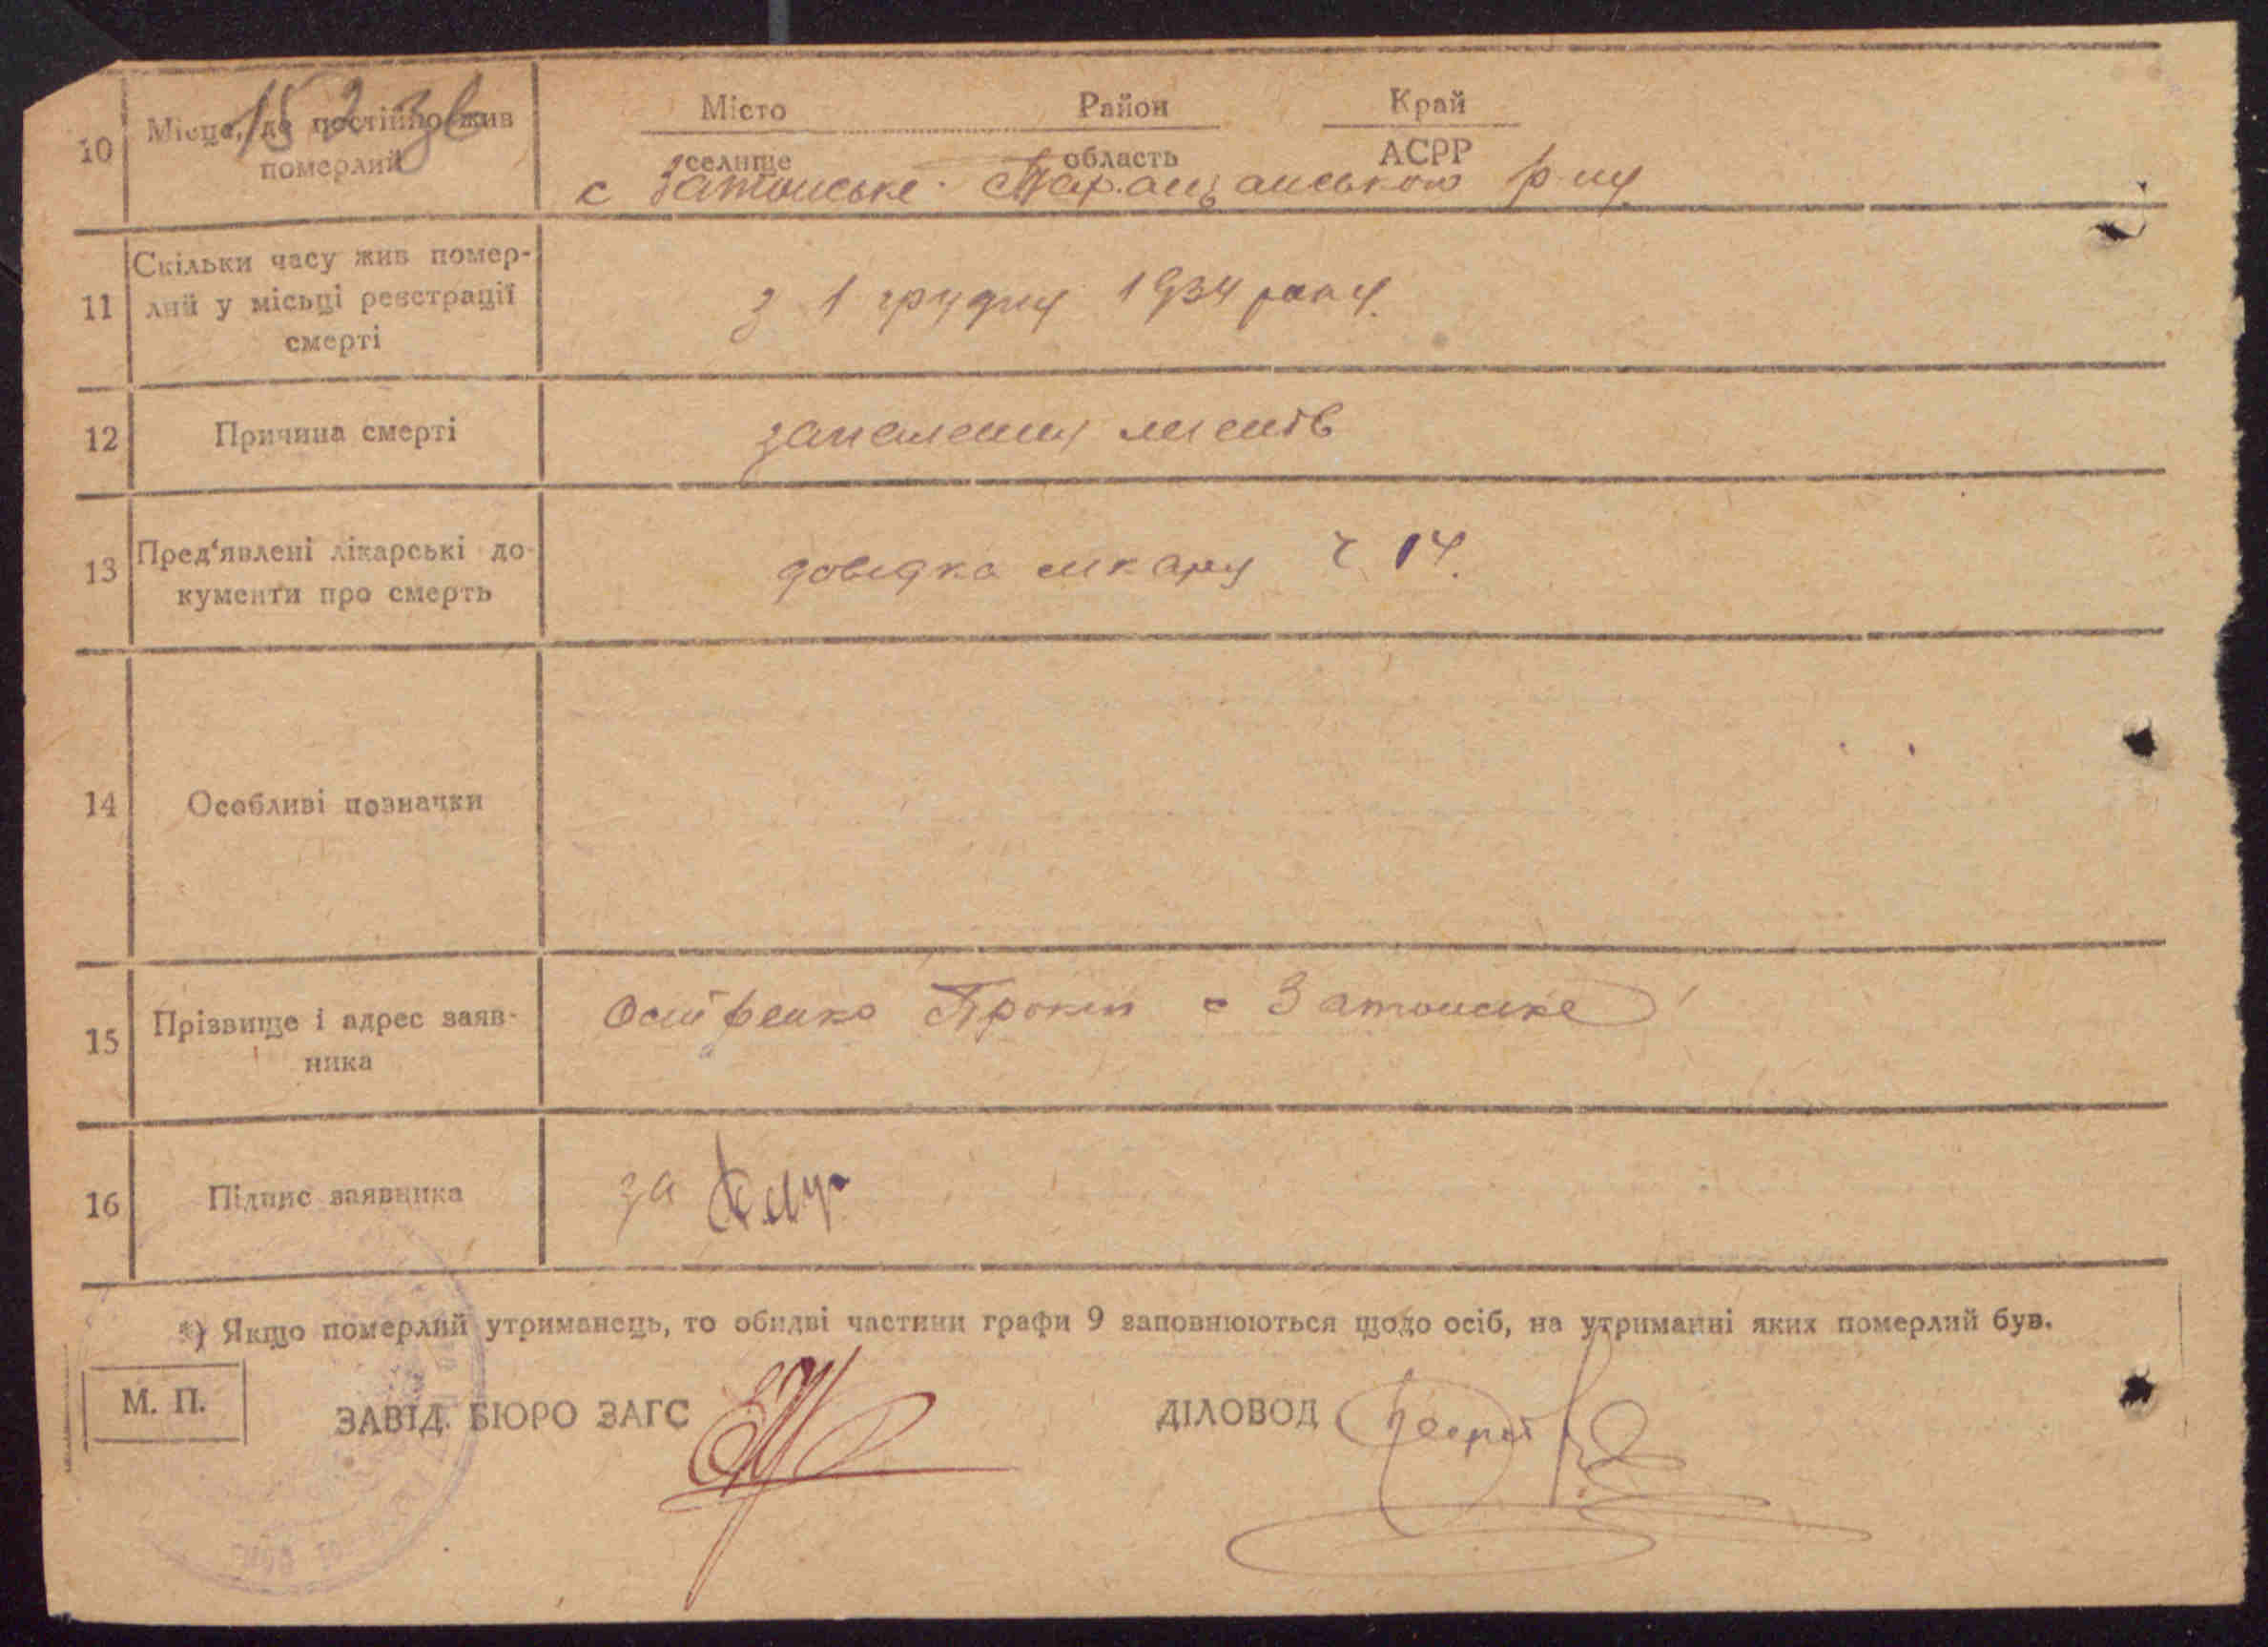 15 2 36
10 Місце, де постійно жив
померлий
Місто Район Край
селище область АСРР
с Затонське Таращанського р-ну
11 Скільки часу жив помер-
лий у місьці реєстрації
смерті
з 1 грудня 1934 року.
12 Причина смерті
запалення легенів
13 Пред'явлені лікарські до-
кументи про смерть
довідка лікаря ч 14.
14 Особливі позначки
15 Прізвище і адрес заяв-
ника
Прокіп с Затонське
16 Підпис заявника
за
*) Якщо померлий утриманець, то обидві частини графи 9 заповнюються щодо осіб, на утриманні яких померлий був.
М. П.
ЗАВІД. БЮРО ЗАГС
ДІЛОВОД